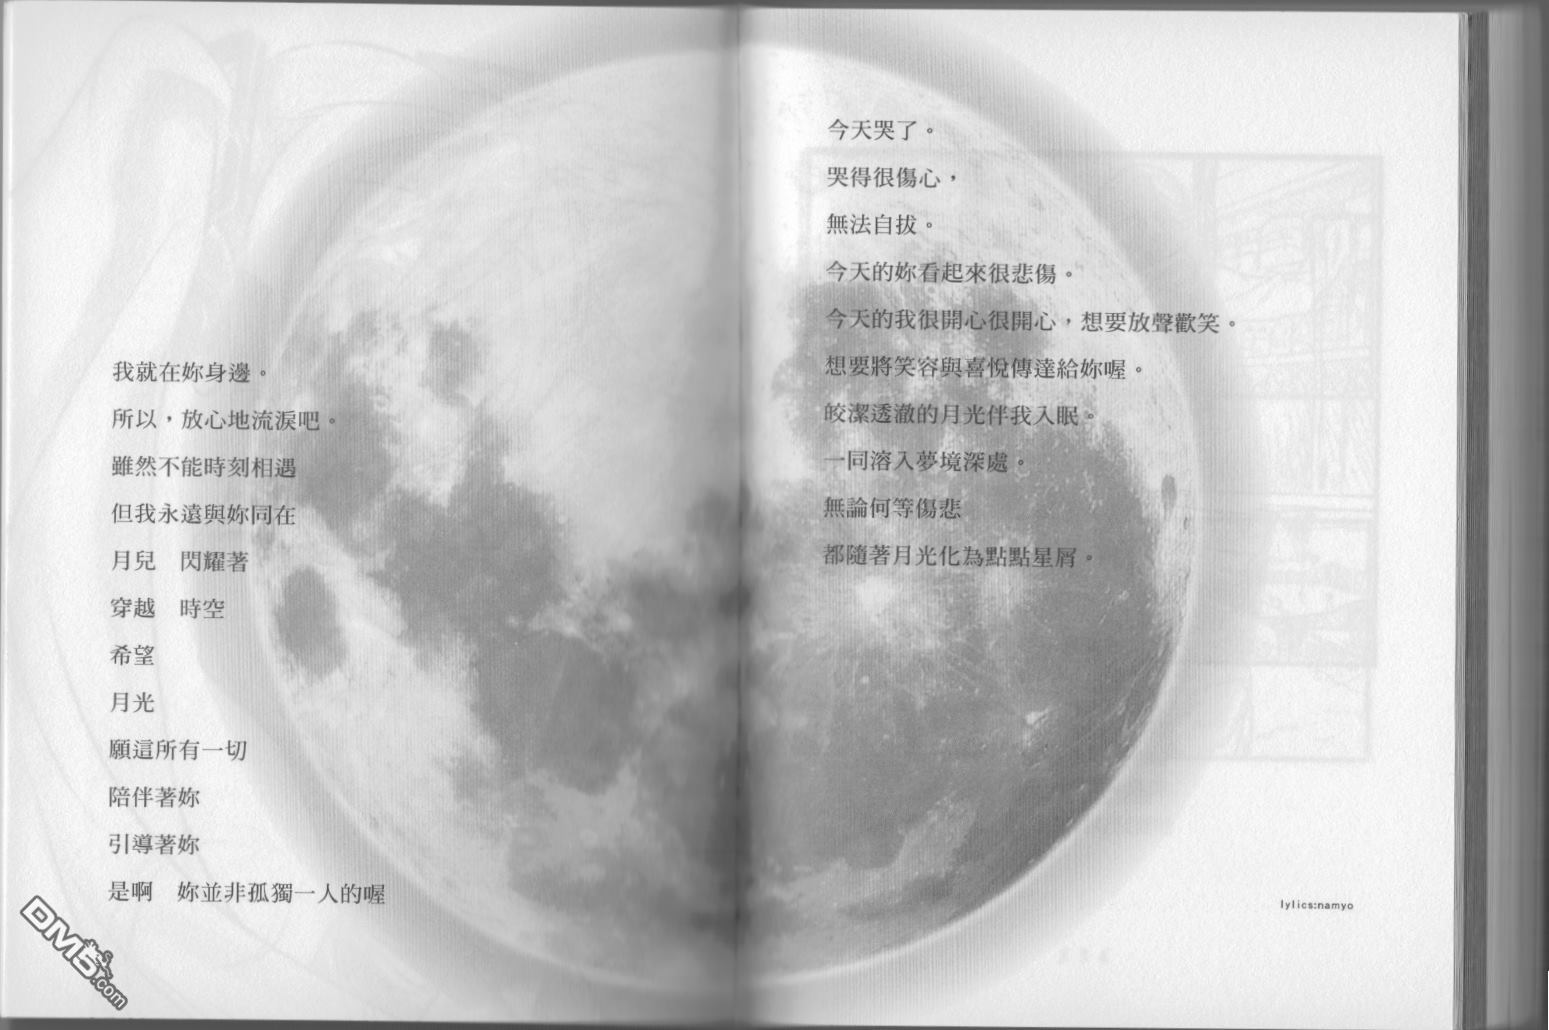 今天哭了。
哭得很傷心，
無法自拔。
今天的妳看起來很悲傷。
今天的我很開心很開心，想要放聲歡笑。
想要將笑容與喜悅傳達給妳喔。
皎潔透澈的月光伴我入眠。
一同溶入夢境深處。
無論何等傷悲
都隨著月光化為點點星屑。
我就在妳身邊。
所以，放心地流淚吧。
雖然不能時刻相遇
但我永遠與妳同在
月兒　閃耀著
穿越　時空
希望
月光
願這所有一切
陪伴著妳
引導著妳
是啊　妳並非孤獨一人的喔
lylics:namyo
DM5.com